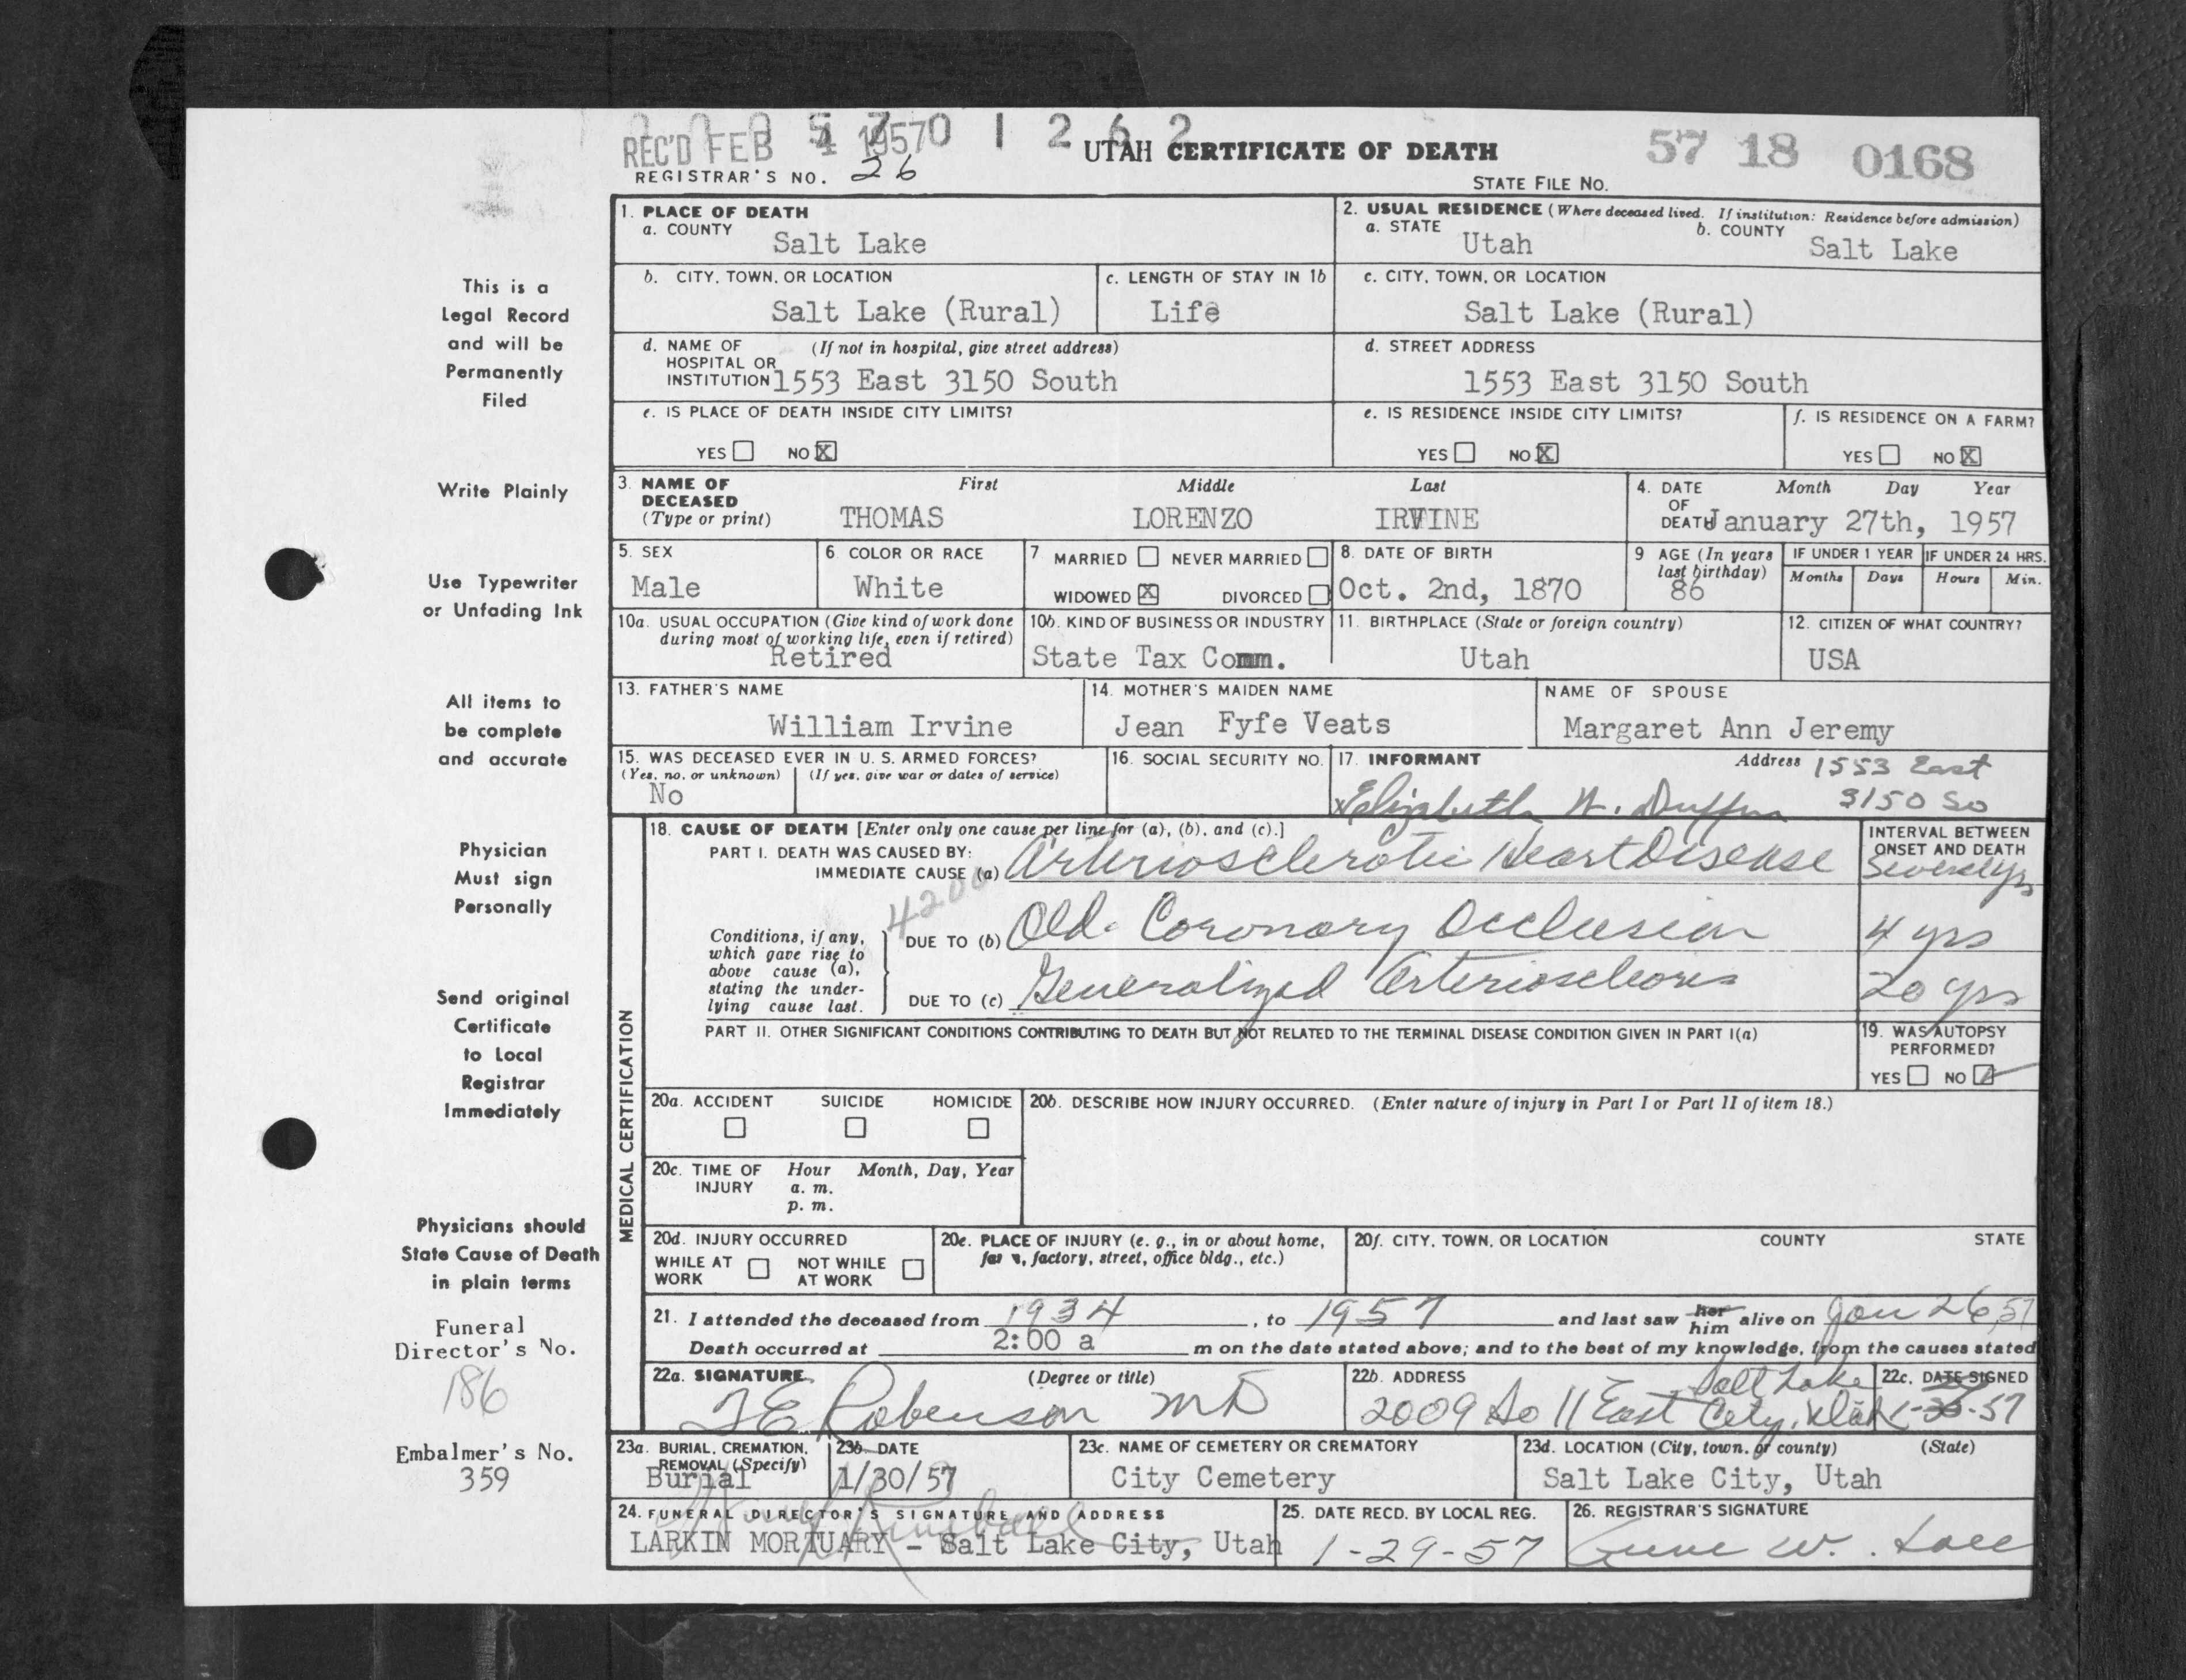 0 0 0 5 7 0 1 2 6 2
REC'D FEB 4 1957
UTAH CERTIFICATE OF DEATH
57 18 0168
REGISTRAR'S NO. 26
STATE FILE NO.
This is a
Legal Record
and will be
Permanently
Filed
Write Plainly
Use Typewriter
or Unfading Ink
All items to
be complete
and accurate
Physician
Must sign
Personally
Send original
Certificate
to Local
Registrar
Immediately
Physicians should
State Cause of Death
in plain terms
Funeral
Director's No.
186
Embalmer's No.
359
1. PLACE OF DEATH
a. COUNTY
Salt Lake
2. USUAL RESIDENCE (Where deceased lived. If institution: Residence before admission)
a. STATE Utah b. COUNTY Salt Lake
b. CITY, TOWN, OR LOCATION
Salt Lake (Rural)
c. LENGTH OF STAY IN 1b
Life
c. CITY, TOWN, OR LOCATION
Salt Lake (Rural)
d. NAME OF (If not in hospital, give street address)
HOSPITAL OR
INSTITUTION 1553 East 3150 South
d. STREET ADDRESS
1553 East 3150 South
e. IS PLACE OF DEATH INSIDE CITY LIMITS?
YES NO X
e. IS RESIDENCE INSIDE CITY LIMITS?
YES NO X
f. IS RESIDENCE ON A FARM?
YES NO X
3. NAME OF DECEASED (Type or print) First Middle Last
THOMAS LORENZO IRVINE
4. DATE OF DEATH Month Day Year
January 27th, 1957
5. SEX
Male
6. COLOR OR RACE
White
7. MARRIED NEVER MARRIED
WIDOWED X DIVORCED
8. DATE OF BIRTH
Oct. 2nd, 1870
9 AGE (In years last birthday)
86
IF UNDER 1 YEAR IF UNDER 24 HRS.
Months Days Hours Min.
10a. USUAL OCCUPATION (Give kind of work done
during most of working life, even if retired)
Retired
10b. KIND OF BUSINESS OR INDUSTRY
State Tax Comm.
11. BIRTHPLACE (State or foreign country)
Utah
12. CITIZEN OF WHAT COUNTRY?
USA
13. FATHER'S NAME
William Irvine
14. MOTHER'S MAIDEN NAME
Jean Fyfe Veats
NAME OF SPOUSE
Margaret Ann Jeremy
15. WAS DECEASED EVER IN U. S. ARMED FORCES?
(Yes, no, or unknown) (If yes, give war or dates of service)
No
16. SOCIAL SECURITY NO.
17. INFORMANT Address 1553 East
x Elizabeth 3150 So
MEDICAL CERTIFICATION
18. CAUSE OF DEATH [Enter only one cause per line for (a), (b), and (c).]
PART I. DEATH WAS CAUSED BY:
IMMEDIATE CAUSE (a) Arteriosclerotic Heart Disease
INTERVAL BETWEEN
ONSET AND DEATH
Several yrs
4200
Conditions, if any,
which gave rise to
above cause (a),
stating the under-
lying cause last.
DUE TO (b) Old Coronary Occlusion 4 yrs
DUE TO (c) Generalized Arteriosclerosis 20 yrs
PART II. OTHER SIGNIFICANT CONDITIONS CONTRIBUTING TO DEATH BUT NOT RELATED TO THE TERMINAL DISEASE CONDITION GIVEN IN PART I(a)
19. WAS AUTOPSY
PERFORMED?
YES NO
20a. ACCIDENT SUICIDE HOMICIDE
20b. DESCRIBE HOW INJURY OCCURRED. (Enter nature of injury in Part I or Part II of item 18.)
20c. TIME OF INJURY Hour Month, Day, Year
a. m.
p. m.
20d. INJURY OCCURRED
WHILE AT WORK NOT WHILE AT WORK
20e. PLACE OF INJURY (e. g., in or about home,
farm, factory, street, office bldg., etc.)
20f. CITY, TOWN, OR LOCATION COUNTY STATE
21. I attended the deceased from 1934, to 1957 and last saw her him alive on Jan 26, 57
Death occurred at 2:00 a m on the date stated above; and to the best of my knowledge, from the causes stated
22a. SIGNATURE (Degree or title)
T E Robenson MD
22b. ADDRESS
2009 So 11 East Salt Lake City, Utah
22c. DATE SIGNED
23a. BURIAL, CREMATION,
REMOVAL (Specify)
Burial
23b. DATE
1/30/57
23c. NAME OF CEMETERY OR CREMATORY
City Cemetery
23d. LOCATION (City, town, or county) (State)
Salt Lake City, Utah
24. FUNERAL DIRECTOR'S SIGNATURE AND ADDRESS
LARKIN MORTUARY - Salt Lake City, Utah
25. DATE RECD. BY LOCAL REG.
1-29-57
26. REGISTRAR'S SIGNATURE